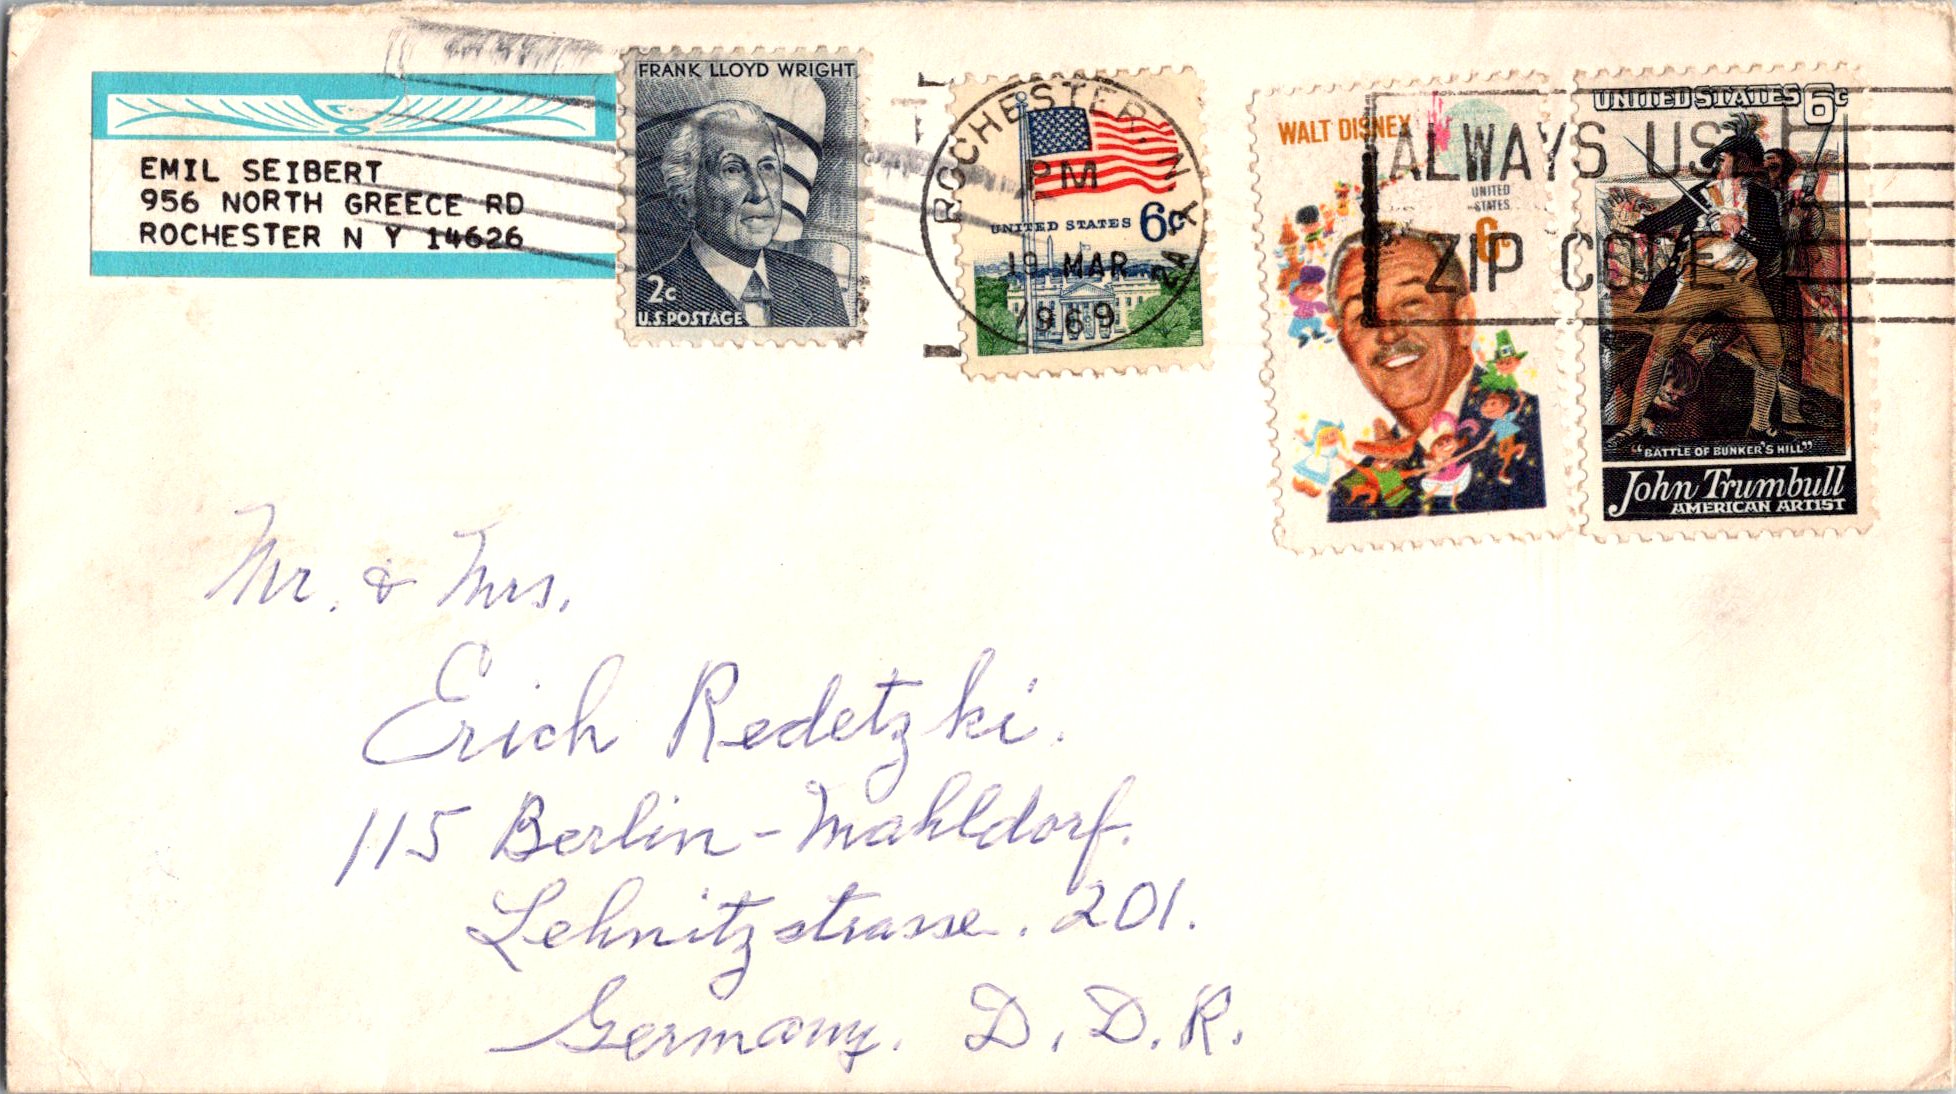 EMIL SEIBERT
956 NORTH GREECE RD
ROCHESTER N Y 14626
FRANK LLOYD WRIGHT
2c
U.S. POSTAGE
ROCHESTER, N.Y.
PM
19 MAR
1969
UNITED STATES 6c
WALT DISNEY
UNITED
STATES
6c
ALWAYS USE
ZIP CODE
UNITED STATES 6c
"BATTLE OF BUNKER'S HILL"
John Trumbull
AMERICAN ARTIST
Mr. & Mrs.
Erich Redetzki.
115 Berlin-Mahldorf.
Lehnitzstrasse. 201.
Germany. D.D.R.